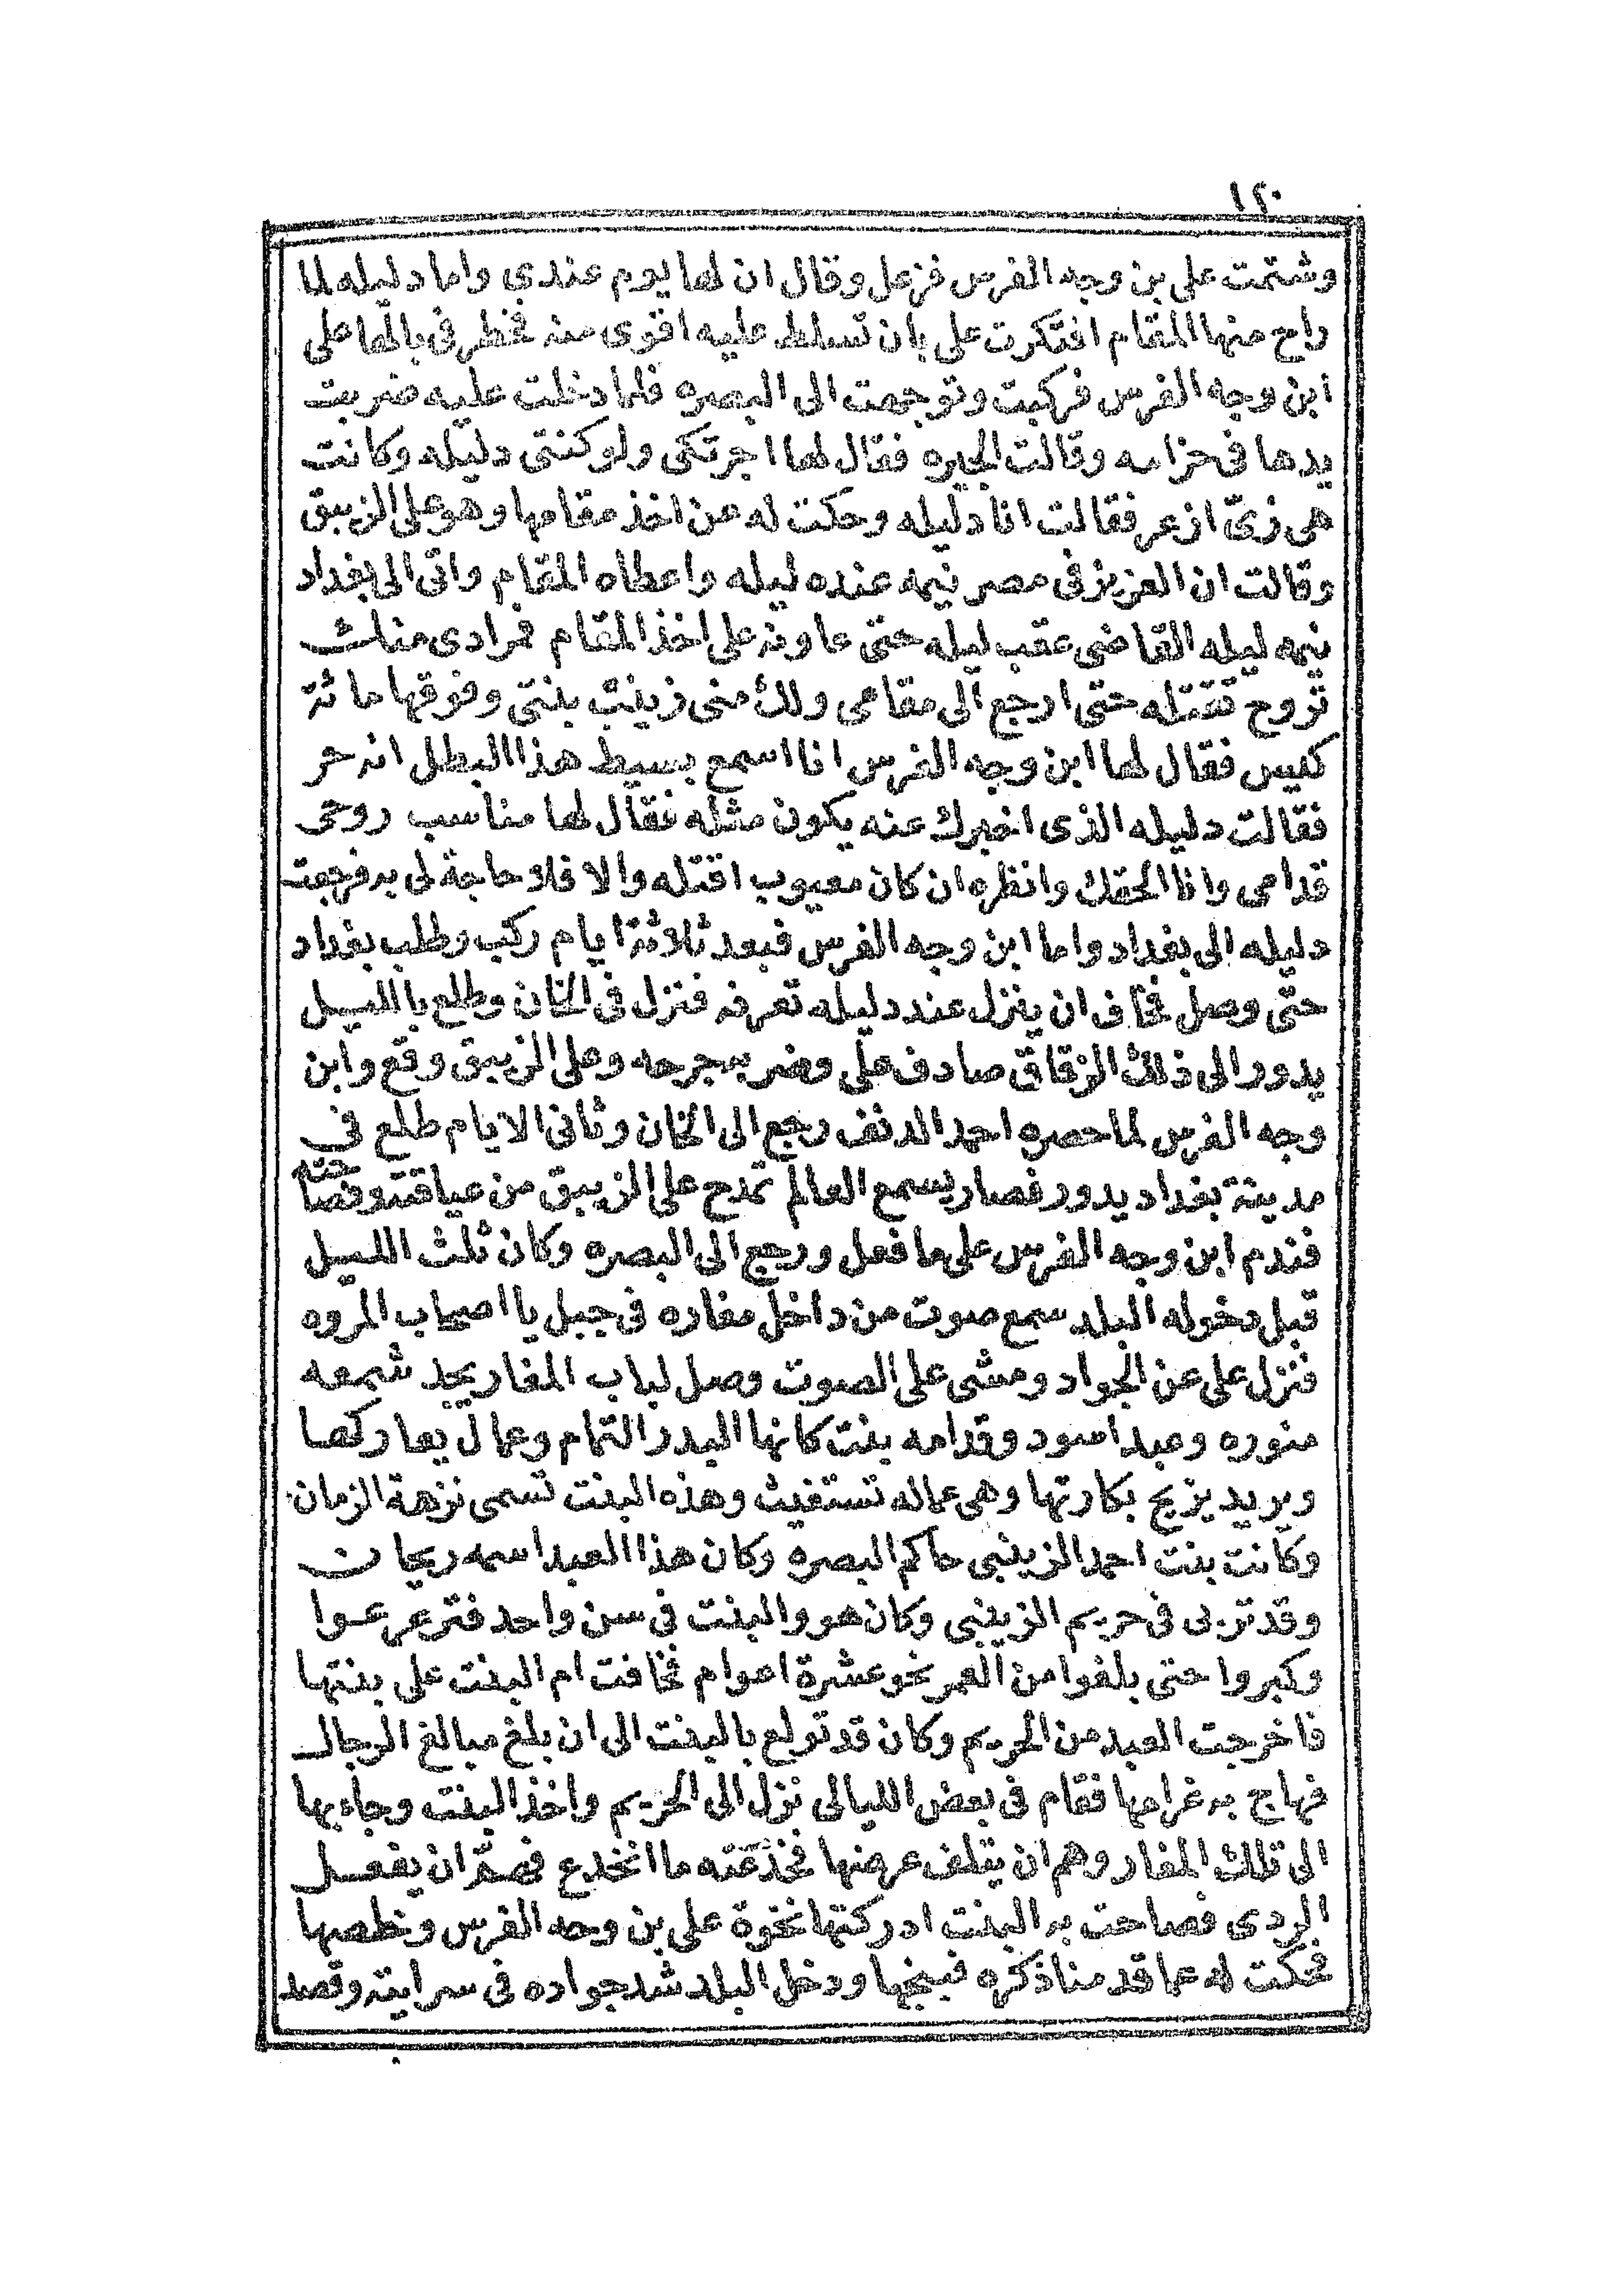 ١٢٠
وشتمت على بن وجه الفرس فزعل وقال ان لها يوم عندى واما دليله لما
راح منها المقام افتكرت على بان تسلط عليه اقوى منه فخطر فى بالها على
ابن وجه الفرس فركبت وتوجهت الى البصره فلما دخلت عليه ضربت
يدها فى حزامه وقالت الجيره فقال لها اجرتكى ولو كنتى دليله وكانت
هى زى ازعر فقالت انا دليله وحكت له عن اخذ مقامها وهو على الزيبق
وقالت ان العزيز فى مصر نيمه عنده ليله واعطاه المقام واتى الى بغداد
نيمه ليله القاضى عقب ليله حتى عاونه على اخذ المقام فمرادى منك
تروح تقتله حتى ارجع الى مقامى ولك منى زينب بنتى وفوقها مائة
كيس فقال لها ابن وجه الفرس انا اسمع بسيط هذا البطل انه حر
فقالت دليله الذى اخبرك عنه يكون مثله فقال لها مناسب روحى
قدامى وانا الحقك وانظره ان كان معيوب اقتله والا فلا حاجة لى به فرجعت
دليله الى بغداد واما ابن وجه الفرس فبعد ثلاثة ايام ركب وطلب بغداد
حتى وصل فخاف ان ينزل عند دليله تعرفه فنزل فى الخان وطلع بالليل
يدور الى ذلك الزقاق صادف على وضربه جرحه وعلى الزيبق وقع وابن
وجه الفرس لما حصره احمد الدنف رجع الى الخان وثانى الايام طلع فى
مدينة بغداد يدور فصار يسمع العالم تمدح على الزيبق من عياقته وفصاحته
فندم ابن وجه الفرس على ما فعل ورجع الى البصره وكان ثلث الليل
قبل دخوله البلد سمع صوت من داخل مغاره فى جبل يا اصحاب المروه
فنزل على عن الجواد ومشى على الصوت وصل لباب المغار يجد شمعه
منوره وعبد اسود وقدامه بنت كانها البدر التمام وعمال يعاركها
ويريد يزيح بكارتها وهى عماله تستغيث وهذه البنت تسمى نزهة الزمان
وكانت بنت احمد الزينبى حاكم البصره وكان هذا العبد اسمه ريحان
وقد تربى فى حريم الزينبى وكان هو والبنت فى سن واحد فترعرعوا
وكبروا حتى بلغوا من العمر نحو عشرة اعوام فخافت ام البنت على بنتها
فاخرجت العبد من الحريم وكان قد تولع بالبنت الى ان بلغ مبالغ الرجال
فهاج به غرامها فقام فى بعض الليالى نزل الى الحريم واخذ البنت وجاء بها
الى تلك المغار وهم ان يتلف عرضها فخدعته ما انخدع فهم ان يفعل
الردى فصاحت به البنت ادركتها نخوة على بن وجه الفرس وخلصها
فحكت له عما قدمنا ذكره فبنجها ودخل البلد شد جواده فى سرايته وقصد